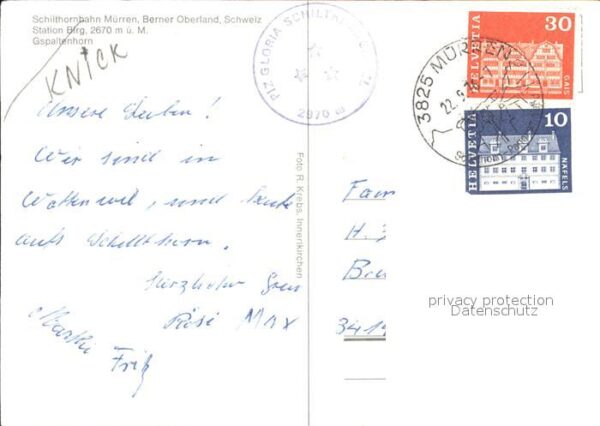 Schilthornbahn Mürren, Berner Oberland, Schweiz
Station Birg, 2670 m ü. M.
Gspaltenhorn
KNICK
PIZ GLORIA SCHILTHORN
2970 m
Unsere Lieben!
Wir sind in
Wattenwil, und heute
aufs Schilthorn.
Herzliche Grüss
Rösi MAX
Fritz
Foto R. Krebs, Innertkirchen
HELVETIA 30
GAIS
3825 MÜRREN
22.9.
HELVETIA 10
NÄFELS
Fam
H.
Br
3414
privacy protection
Datenschutz